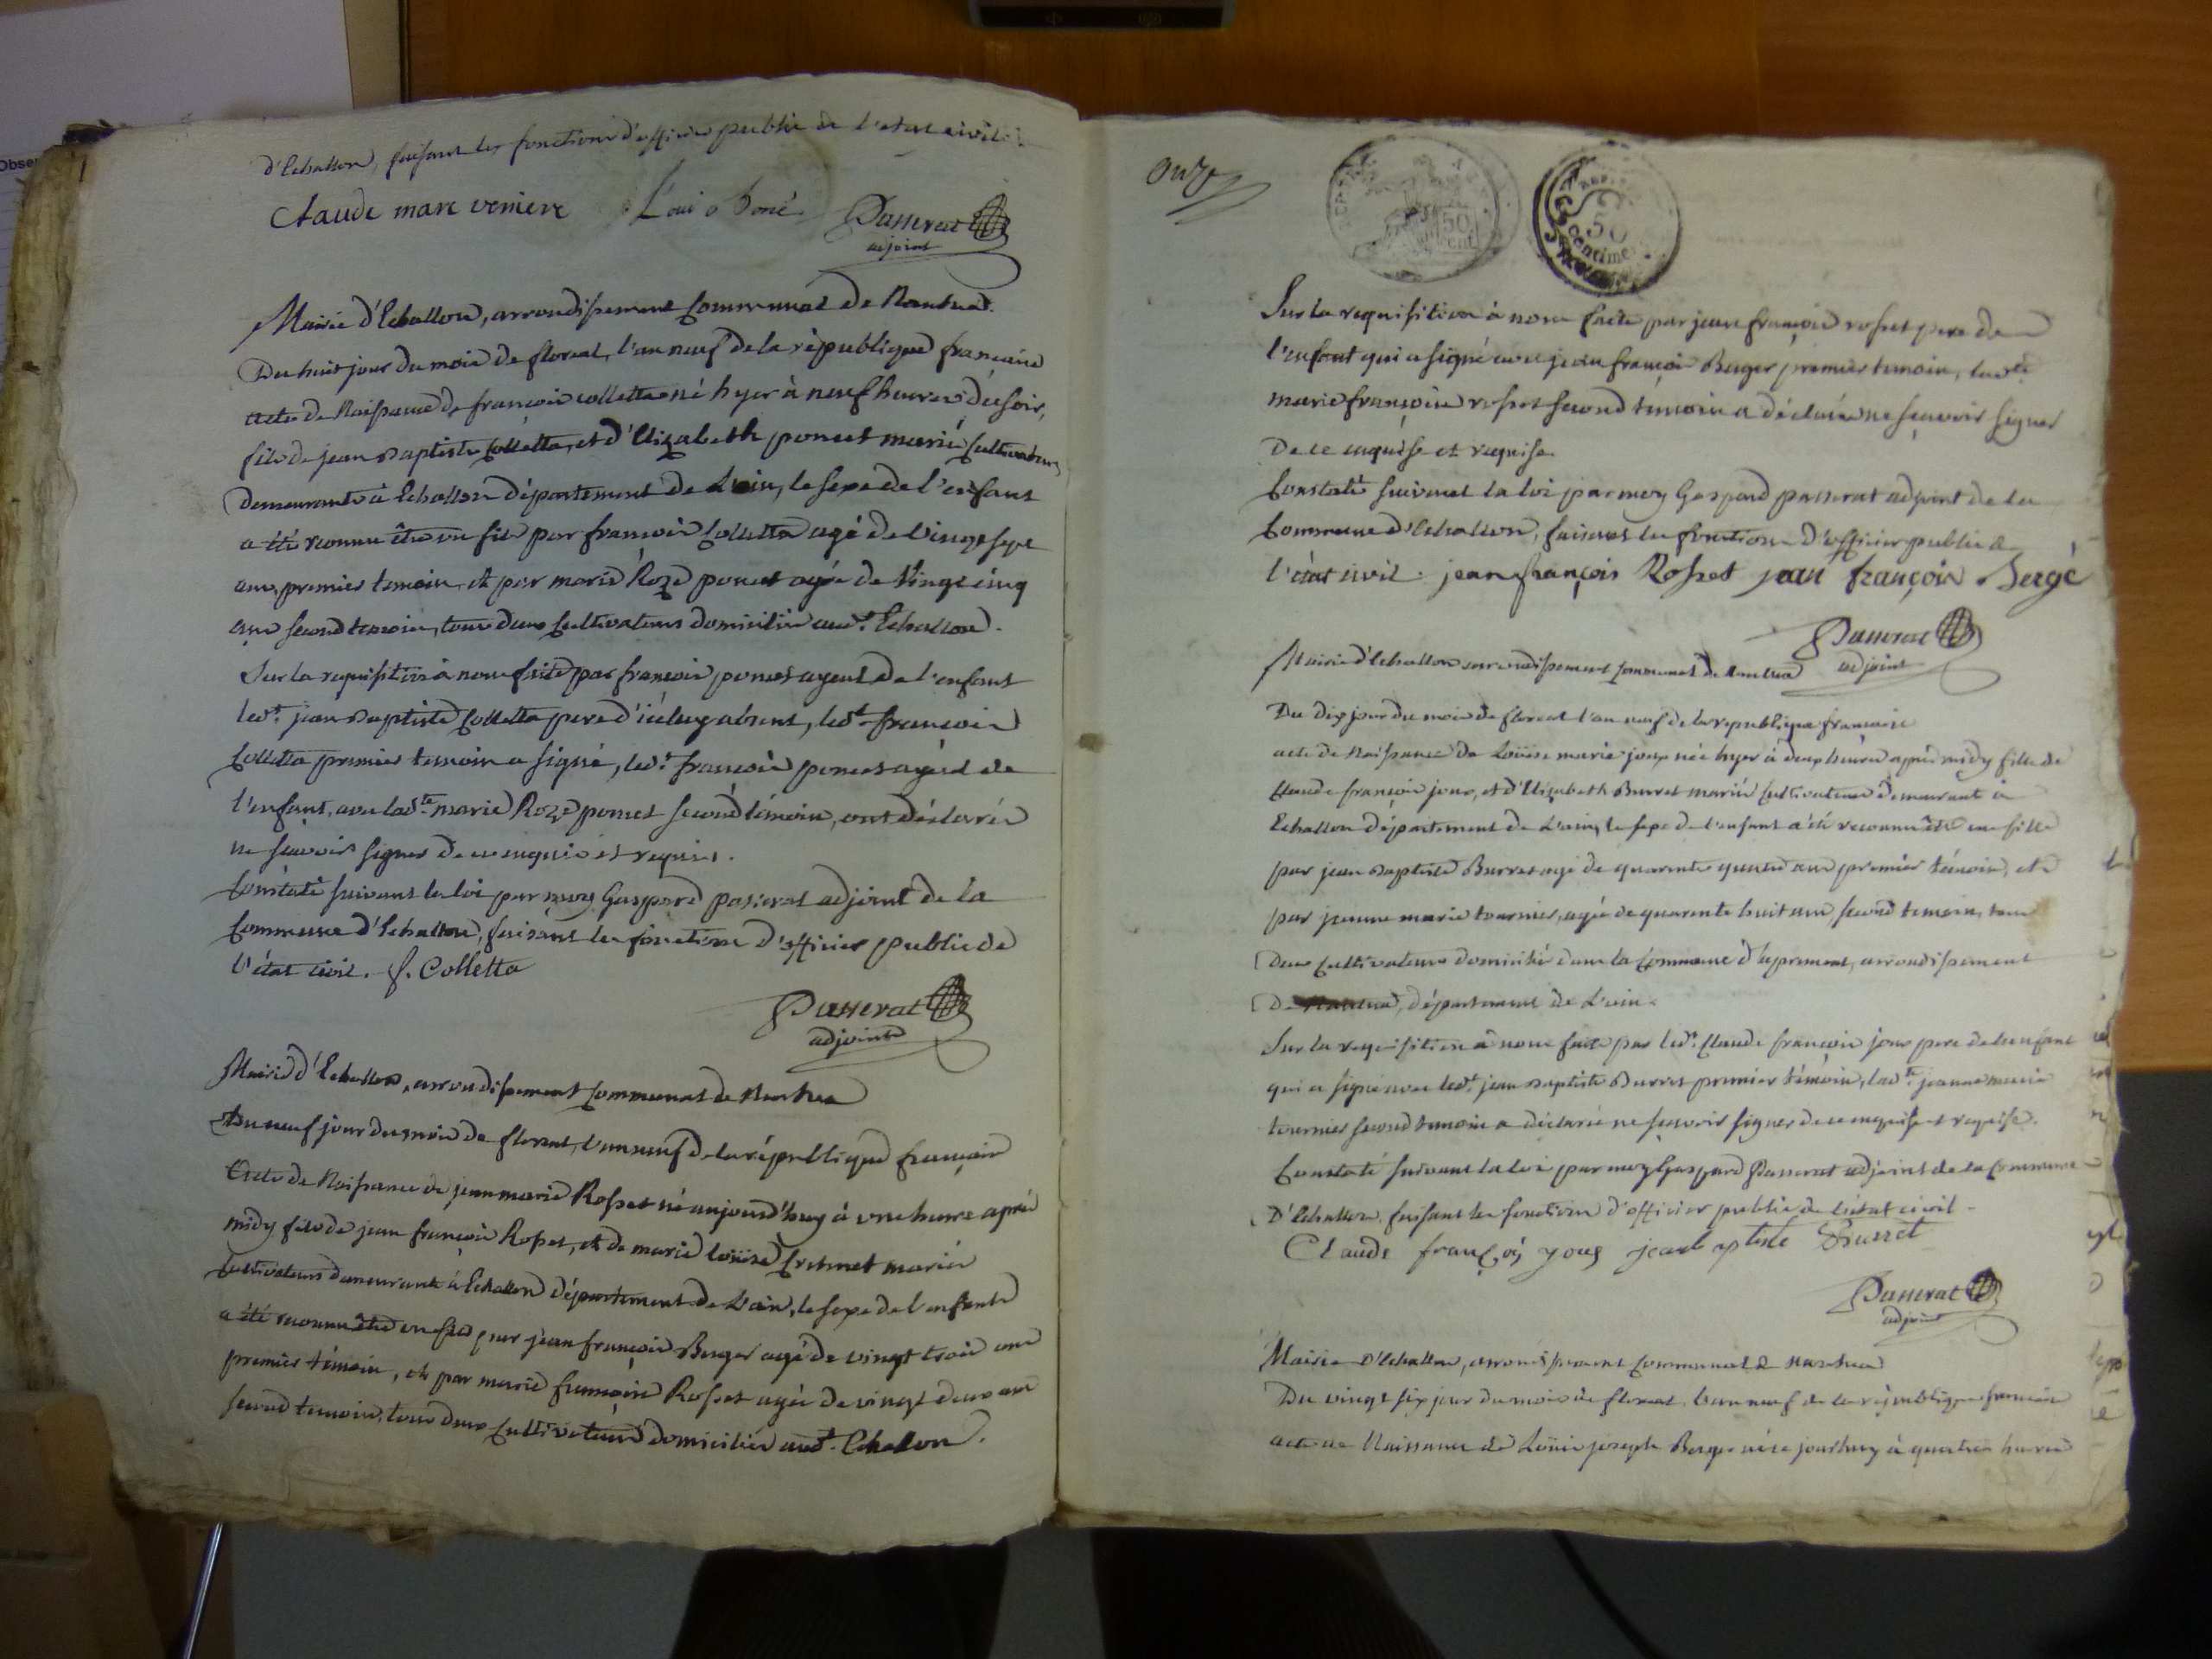 d'Echallon, faisant les fonctions d'officier public de l'etat civil.
Claude marc verniere Loui Boné Passerat
adjoint
Mairie d'Echallon, arrondissement Communal de Nantua.
Du huit jour du mois de floreal, l'an neuf de la république francaise
acte de Naissance de francois colletta né hyer à neuf heures du soir,
fils de jean Baptiste Colletta, et d'Elizabeth poncet mariés Cultivateurs
demeurants à Echallon département de L'ain, le sexe de l'enfant
a été reconnu être un fils par francois Colletta agé de vingt sept
ans, premier temoin, et par marie Roze poncet agée de vingt cinq
ans second temoin, tous deux Cultivateurs domiciliés aud.t Echallon.
Sur la requisition à nous faite par francois poncet ayeul de l'enfant
led.t jean Baptiste Colletta pere d'iceluy absent, led.t francois
Colletta premier temoin a signé, led.t francois poncet ayeul de
l'enfant, avec lad.te marie Roze poncet second témoin, ont déclarés
ne scavoir signer de ce enquis et requis.
Constaté suivant la loi par moy Gaspard passerat adjoint de la
Commune d'Echallon, faisant les fonctions d'officier public de
l'état civil. f. Colletta
Passerat
adjoint
Mairie d'Echallon, arrondissement Communal de Nantua
Du neuf jour du mois de floreal, l'an neuf de la république francaise
Acte de Naissance de jean marie Rosset né aujourd'huy à une heure après
midy fils de jean françois Rosset, et de marie loüise mariés
Cultivateurs demeurants à Echallon département de L'ain, le sexe de l'enfant
a été reconnu être un fils par jean françois Berger agé de vingt trois ans
premier témoin, et par marie francoise Rosset agée de vingt deux ans
second temoin, tous deux Cultivateurs domiciliés aud.t Echallon.
onze
50
50
centime
Sur la requisition à nous faite par jean françois rosset pere de
l'enfant qui a signé avec jean françois Berger premier temoin, lad.te
marie françoise rosset second temoin a déclaré ne scavoir signer
De ce enquise et requise.
Constaté suivant la loi par moy Gaspard passerat adjoint de la
Commune d'Echallon, faisant les fonctions d'officier public de
l'état civil. jean françois Rosset jean françois Bergé
Passerat
adjoint
Mairie d'Echallon arrondissement Communal de Nantua
Du dix jour du mois de floreal l'an neuf de la republique francaise
acte de Naissance de Loüise marie joux née hyer à deux heures après midy fille de
Claude françois joux, et d'Elizabeth Burret mariés Cultivateurs demeurant à
Echallon département de L'ain, le sexe de l'enfant a été reconnu être une fille
par jean Baptiste Burret agé de quarante quatre ans premier témoin, et
par jeanne marie tournier, agée de quarante huit ans second temoin, tous
deux Cultivateurs domiciliés dans la Commune d'apremont, arrondissement
De Nantua, département de L'ain.
Sur la requisition à nous faite par led.t Claude francois joux pere de l'enfant
qui a signé avec led.t jean Baptiste Burret premier témoin, lad.te jeanne marie
tournier second temoin a déclaré ne scavoir signer de ce enquise et requise.
Constaté suivant la loi par moy Gaspard Passerat adjoint de la Commune
D'Echallon, faisant les fonctions d'officier public de l'état civil.
Claude françois joux jean baptiste Burret
Passerat
adjoint
Mairie D'Echallon, arrondissement Communal de Nantua
Du vingt six jour du mois de floreal, l'an neuf de la république francaise
acte de Naissance de Loüis joseph né ce jourd'huy à quatre heures